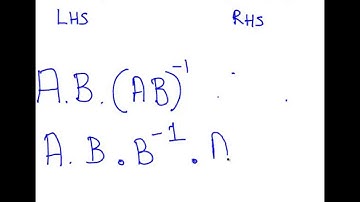 LHS RHS
A.B.(AB)⁻¹
A.B.B⁻¹.